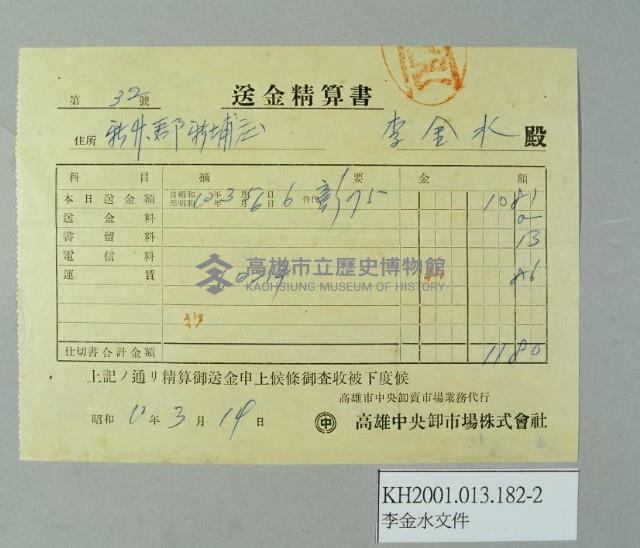 送金精算書
第 32 號
住所 新竹郡新埔庄
李金水 殿
科目 摘要 金額
本日送金額 自昭和10年3月5日 至昭和 年 月6日 6 件代 1081
送金料
書留料 13
電信料
運賃 86
高雄市立歷史博物館
KAOHSIUNG MUSEUM OF HISTORY
仕切書合計金額 1180
上記ノ通リ精算御送金申上候條御査收被下度候
高雄市中央卸賣市場業務代行
昭和 10 年 3 月 14 日 中 高雄中央卸市場株式會社
KH2001.013.182-2
李金水文件